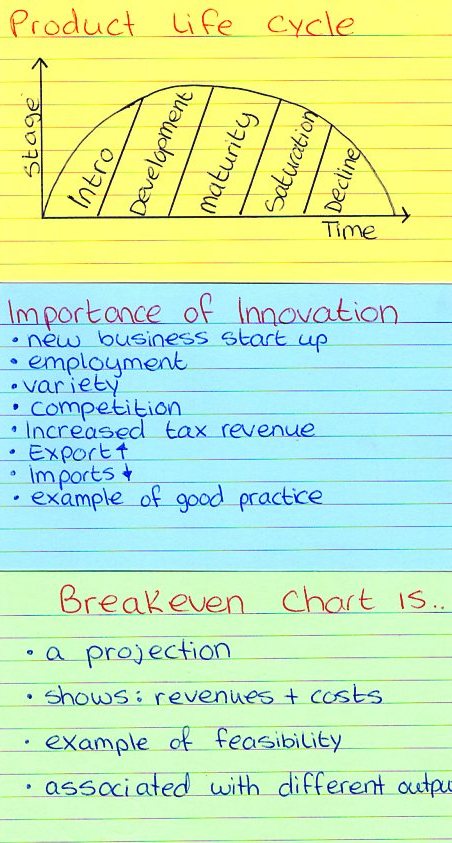 Product Life Cycle
Stage
Intro
Development
Maturity
Saturation
Decline
Time
Importance of Innovation
• new business start up
• employment
• variety
• competition
• Increased tax revenue
• Export ↑
• Imports ↓
• example of good practice
Breakeven Chart is..
• a projection
• shows: revenues + costs
• example of feasibility
• associated with different outpu